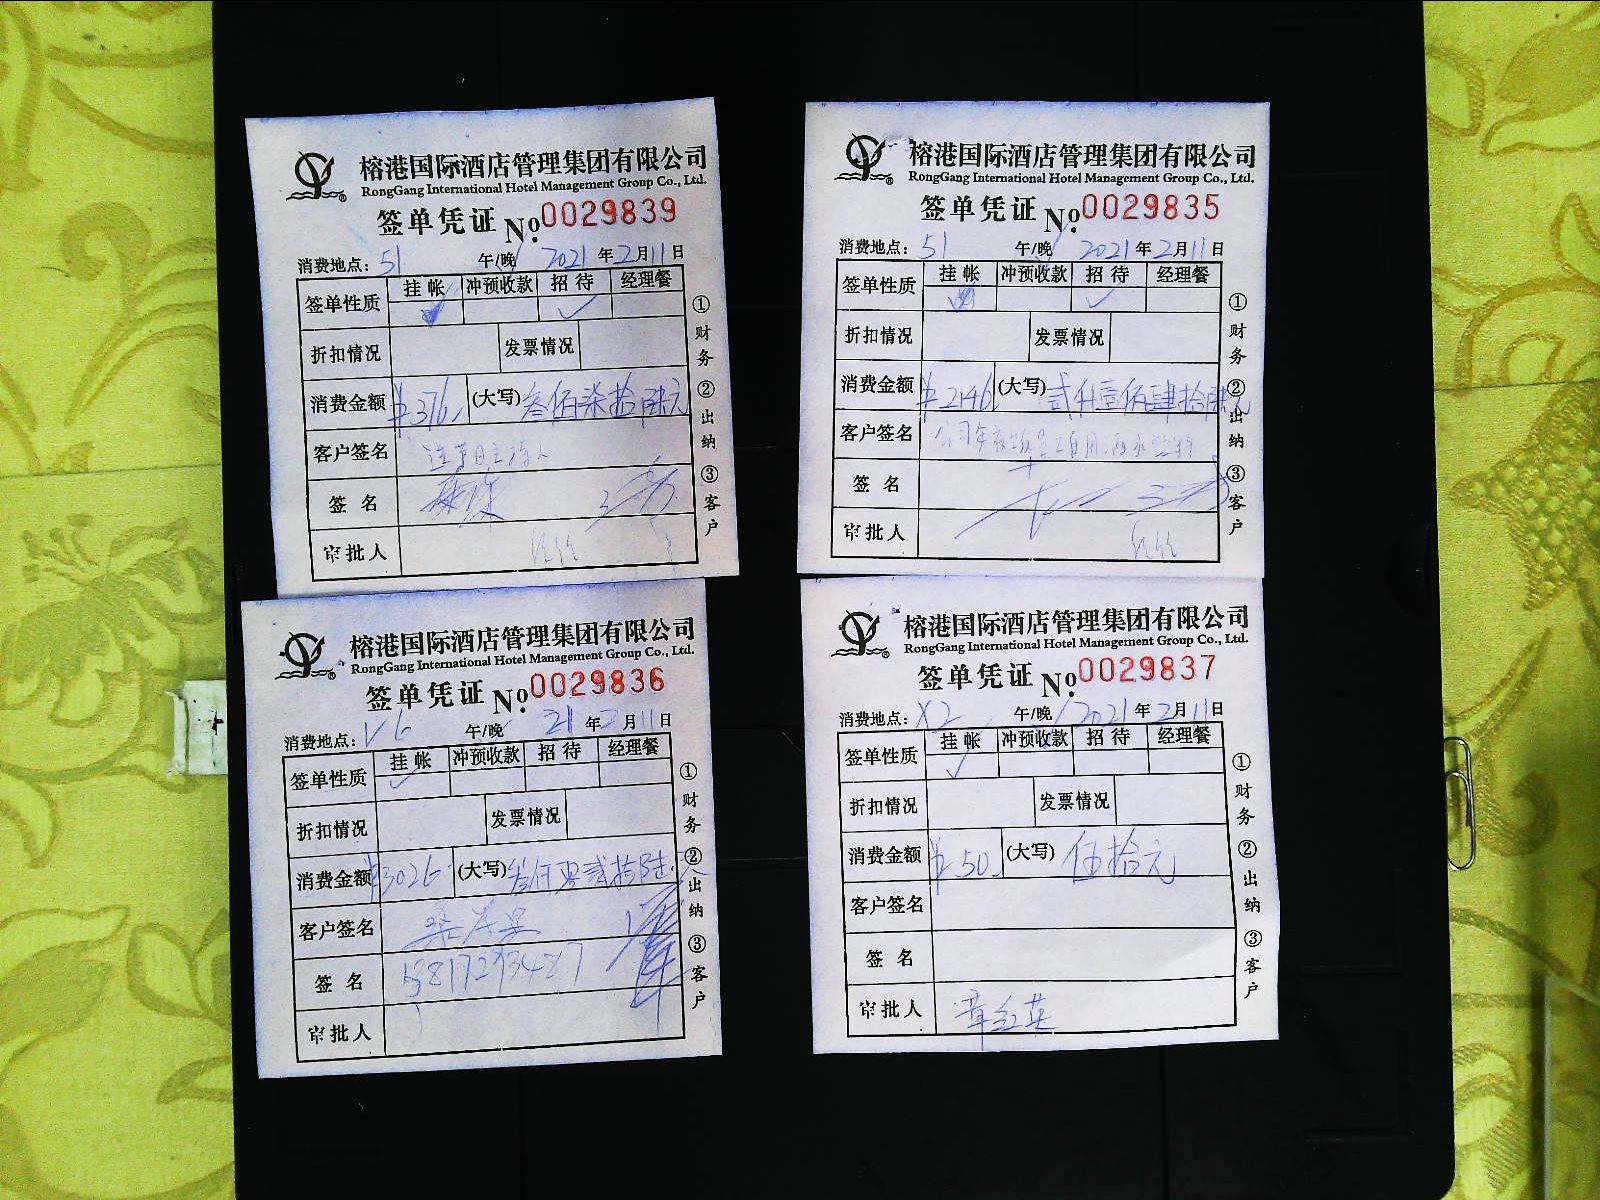 榕港国际酒店管理集团有限公司
RongGang International Hotel Management Group Co., Ltd.
签单凭证 No. 0029839
消费地点: 51 午/晚 2021 年 2 月 11 日
签单性质 挂帐 冲预收款 招待 经理餐
折扣情况 发票情况
消费金额 ¥376 (大写) 叁佰柒拾陆元
客户签名
签名
审批人
①财务 ②出纳 ③客户
榕港国际酒店管理集团有限公司
RongGang International Hotel Management Group Co., Ltd.
签单凭证 No. 0029835
消费地点: 51 午/晚 2021 年 2 月 11 日
签单性质 挂帐 冲预收款 招待 经理餐
折扣情况 发票情况
消费金额 ¥2146 (大写) 贰仟壹佰肆拾陆元
客户签名
签名
审批人
①财务 ②出纳 ③客户
榕港国际酒店管理集团有限公司
RongGang International Hotel Management Group Co., Ltd.
签单凭证 No. 0029836
消费地点: V6 午/晚 21 年 2 月 11 日
签单性质 挂帐 冲预收款 招待 经理餐
折扣情况 发票情况
消费金额 ¥3026 (大写) 叁仟零贰拾陆元
客户签名
签名 13817293487
审批人
①财务 ②出纳 ③客户
榕港国际酒店管理集团有限公司
RongGang International Hotel Management Group Co., Ltd.
签单凭证 No. 0029837
消费地点: X2 午/晚 2021 年 2 月 11 日
签单性质 挂帐 冲预收款 招待 经理餐
折扣情况 发票情况
消费金额 ¥50 (大写) 伍拾元
客户签名
签名
审批人 章红英
①财务 ②出纳 ③客户